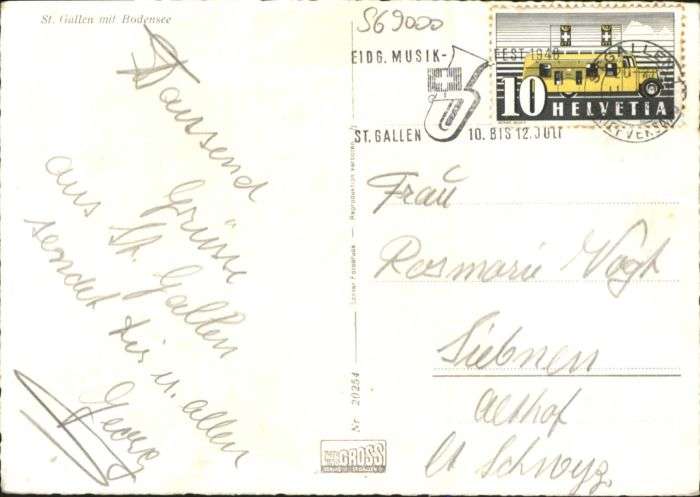 St. Gallen mit Bodensee
S69000
EIDG. MUSIK-FEST 1948
ST. GALLEN 10. BIS 12. JULI
10 HELVETIA
Tausend
Grüsse
aus St. Gallen
sendet dir u. allen
Georg
Nr. 20254
Reproduktion verboten
GROSS
Frau
Rosmarie Vogt
Siebnen
Althof
Ct Schwyz